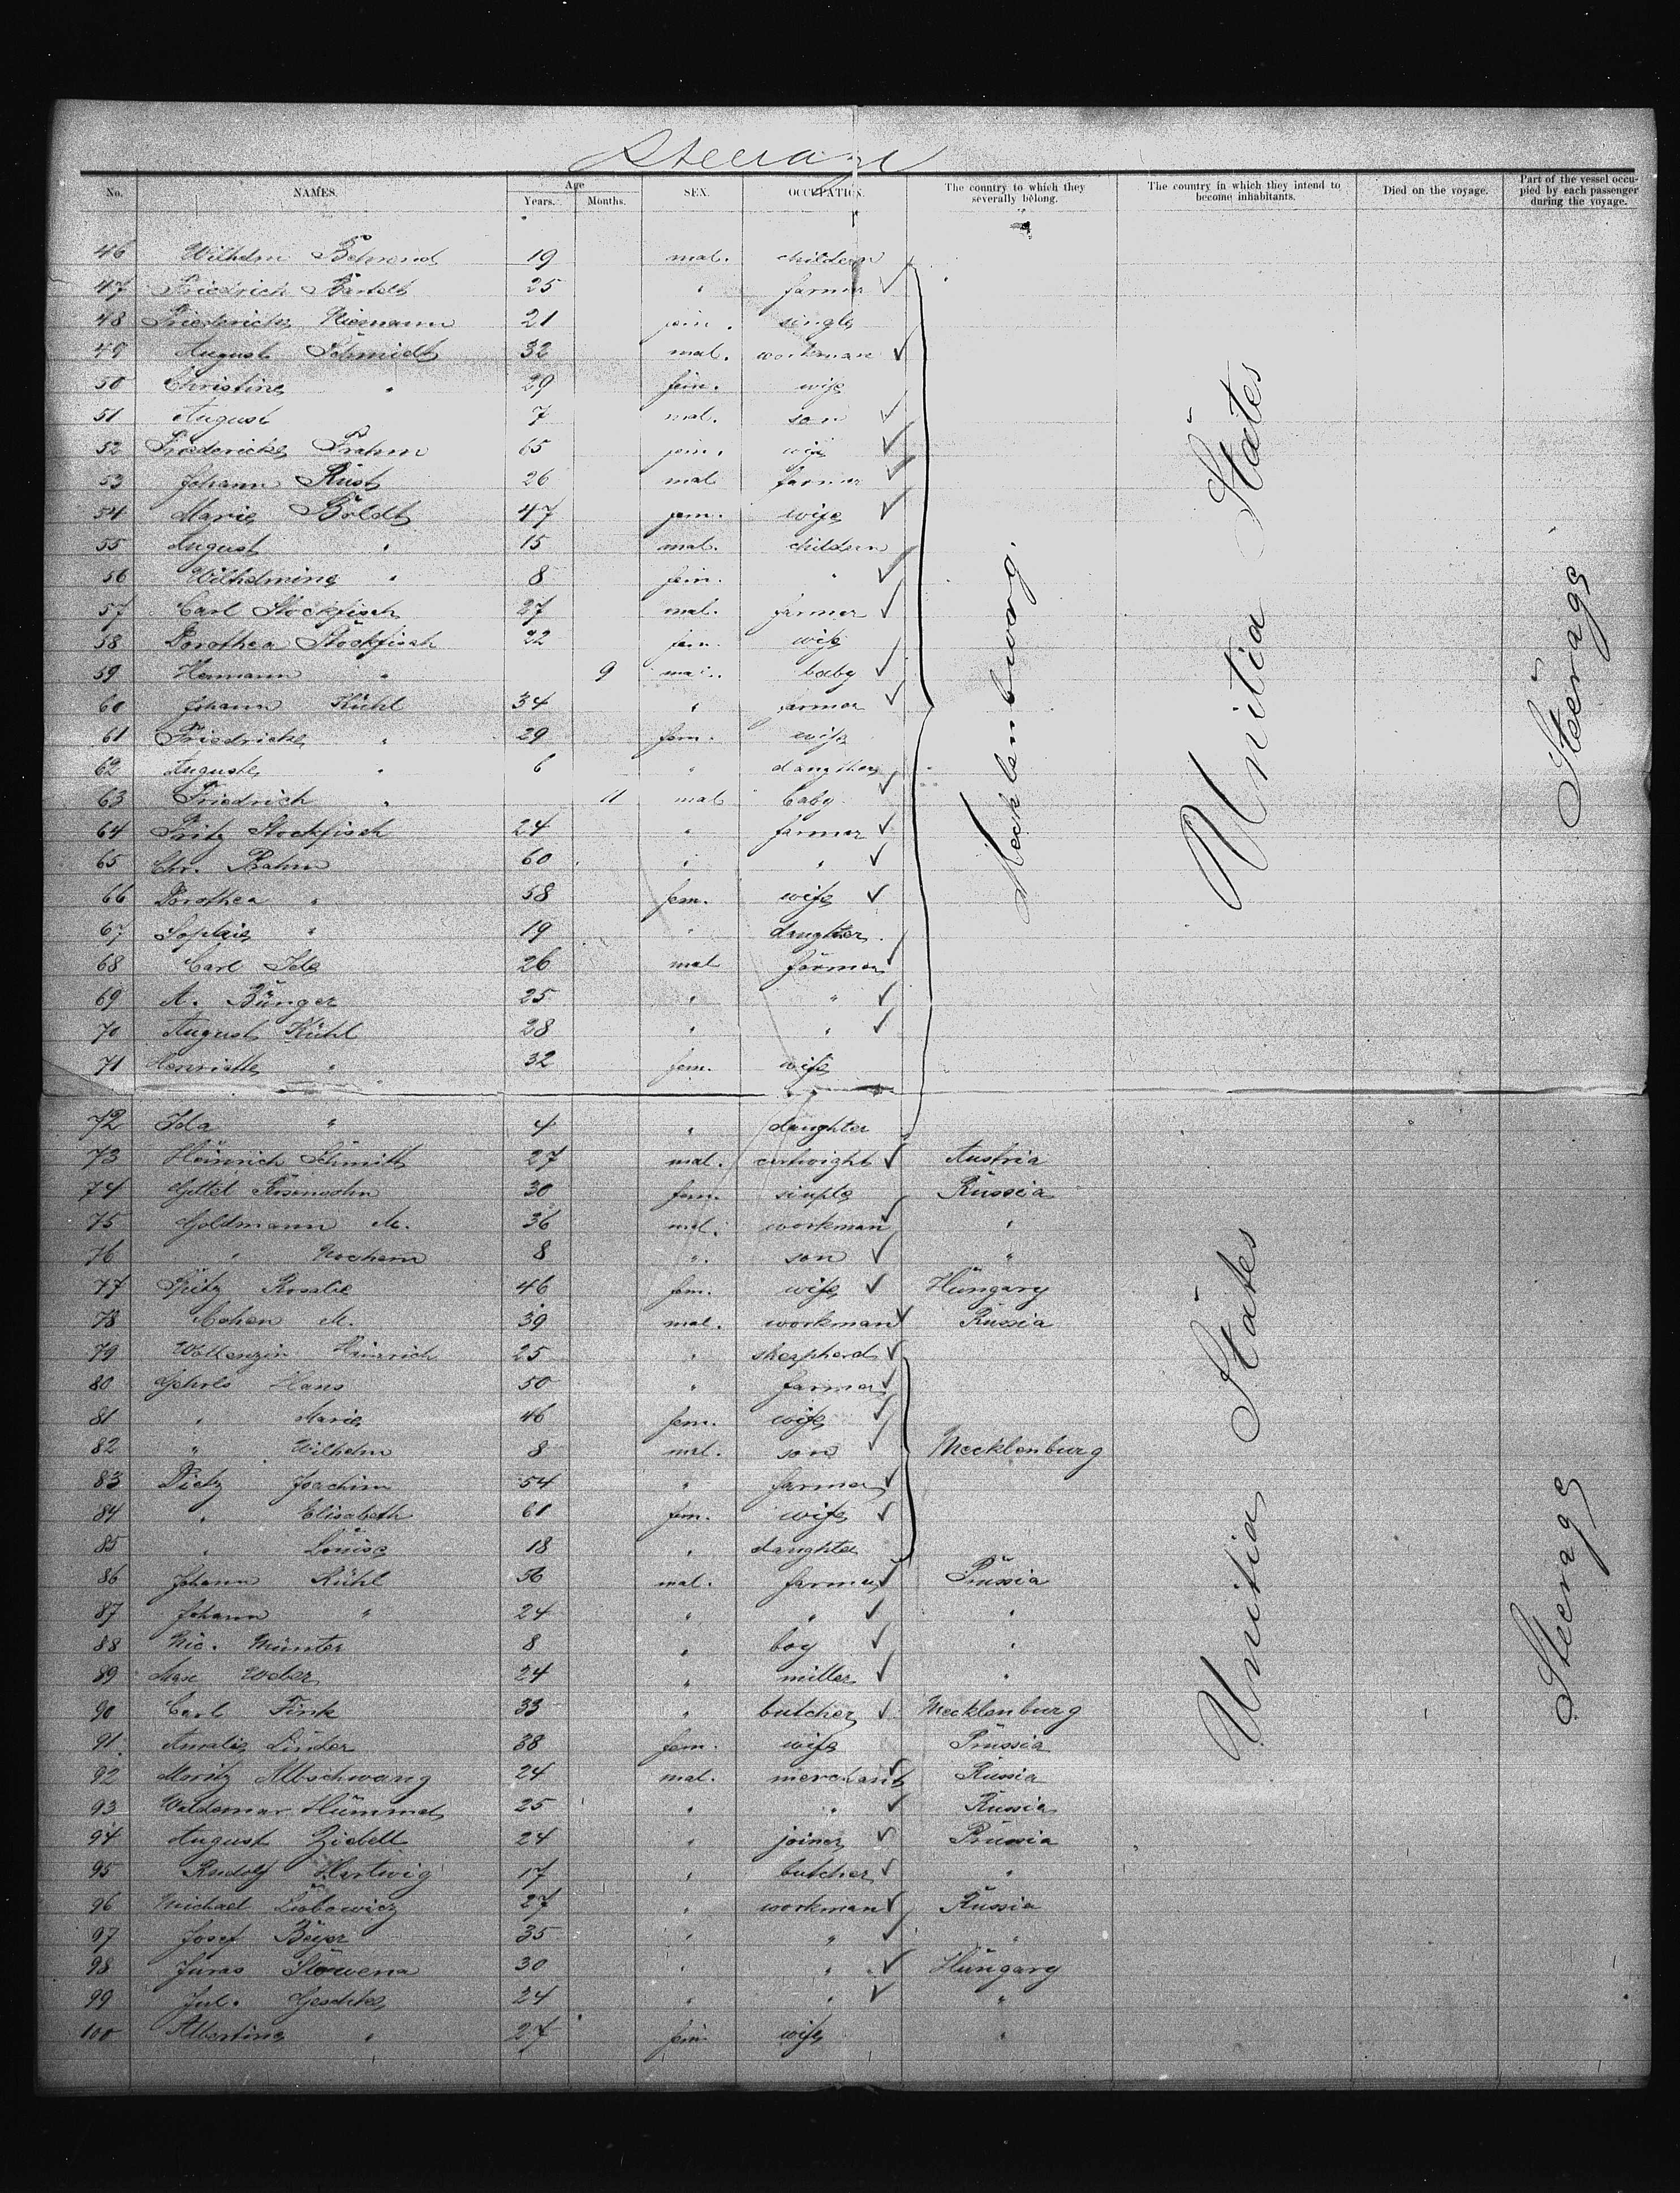 Steerage
No. NAMES. Age Years. Months. SEX. OCCUPATION. The country to which they severally belong. The country in which they intend to become inhabitants. Died on the voyage. Part of the vessel occupied by each passenger during the voyage.
46 Wilhelm Behrend 19 mal. children
47 Friedrich Bartelt 25 " farmer
48 Friedericke Niemann 21 fem. single
49 August Schmidt 32 mal. workman
50 Christine " 29 fem. wife
51 August 7 mal. son
52 Friedericke Prahm 65 fem. wife
53 Johann Rust 26 mal farmer
54 Marie Boldt 47 fem. wife
55 August " 15 mal. children
56 Wilhelmine " 8 fem. "
57 Carl Stockfisch 27 mal. farmer
58 Dorothea Stockfisch 22 fem. wife
59 Hermann " 9 mal. baby
60 Johann Kühl 34 " farmer
61 Friedricke " 29 fem. wife
62 Auguste " 6 " daugther
63 Friedrich " 11 mal baby
64 Fritz Stockfisch 24 " farmer
65 Chr. Prahm 60 " "
66 Dorothea " 58 fem. wife
67 Sophie " 19 " daughter
68 Carl Ide 26 mal farmer
69 A. Bünger 25 " "
70 August Kühl 28 " "
71 Henriette " 32 fem. wife
72 Ida " 4 " daughter
Mecklenburg.
United States
Steerage
73 Heinrich Schmitt 27 mal. cartwright Austria
74 Gittel 30 fem. single Russia
75 Goldmann M. 36 mal. workman "
76 " Nochem 8 " son "
77 Spitz Rosalie 46 fem. wife Hungary
78 Cohen M. 39 mal. workman Russia
79 Wollenzin Hinrich 25 " shepherd
80 Gehrls Hans 50 " farmer
81 " Marie 46 fem. wife
82 " Wilhelm 8 mal. son Mecklenburg
83 Dietz Joachim 54 " farmer
84 " Elisabeth 61 fem. wife
85 " Louise 18 " daughter
86 Johann Kühl 56 mal. farmer Prussia
87 Johann " 24 " " "
88 Nic. Münter 8 " boy "
89 Max Weber 24 " miller "
90 Carl Fink 33 " butcher Mecklenburg
91 Amalie Linder 38 fem. wife Prussia
92 Moritz Altschwang 24 mal. merchant Russia
93 Waldemar Hummel 25 " " Russia
94 August Zidell 24 " joiner Prussia
95 Rudolf Hartwig 17 " butcher "
96 Michael 27 " workman Russia
97 Josef Beyer 35 " " "
98 Juras 30 " " Hungary
99 Jul. Geschke 24 " " "
100 Albertine " 27 fem. wife "
United States
Steerage